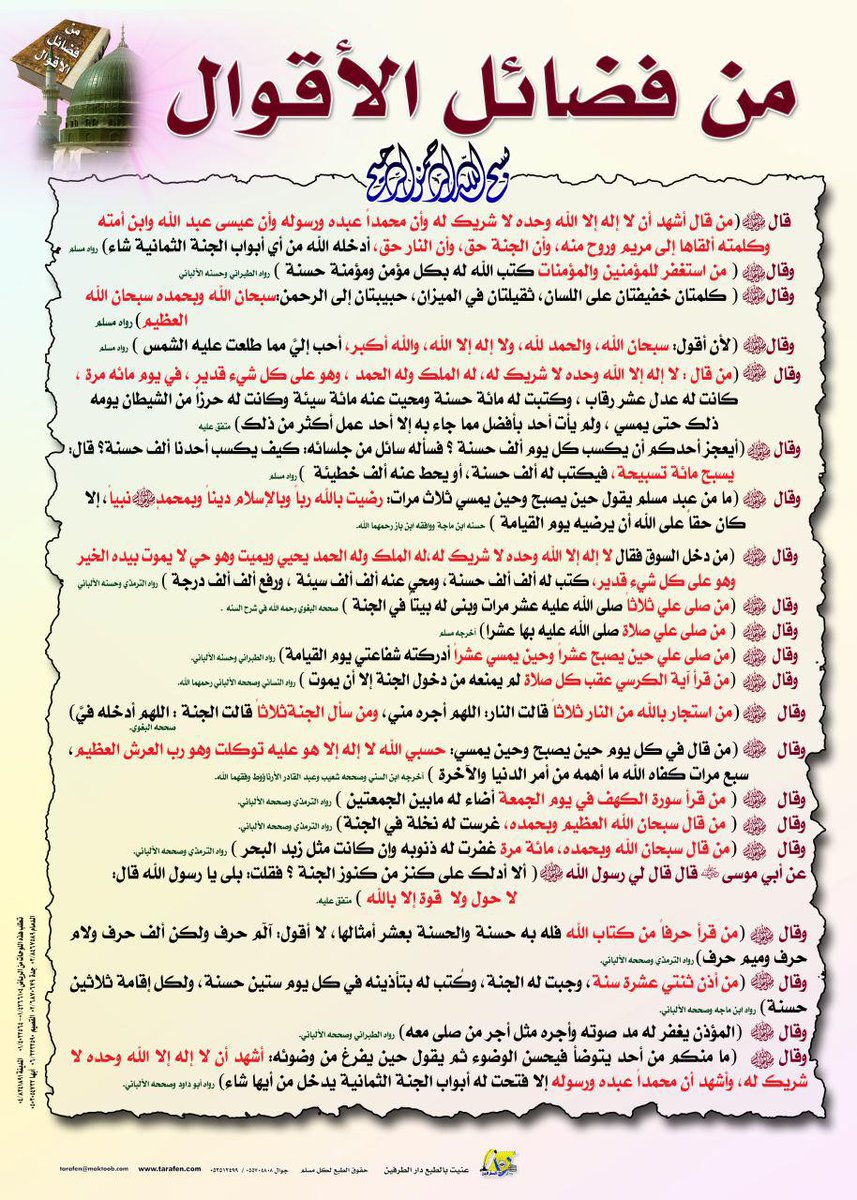 من فضائل الأقوال
من فضائل الأقوال
بسم الله الرحمن الرحيم
قال ﷺ (من قال أشهد أن لا إله إلا الله وحده لا شريك له وأن محمداً عبده ورسوله وأن عيسى عبد الله وابن أمته
وكلمته ألقاها إلى مريم وروح منه، وأن الجنة حق، وأن النار حق، أدخله الله من أي أبواب الجنة الثمانية شاء) رواه مسلم
وقال ﷺ ( من استغفر للمؤمنين والمؤمنات كتب الله له بكل مؤمن ومؤمنة حسنة ) رواه الطبراني وحسنه الألباني
وقال ﷺ ( كلمتان خفيفتان على اللسان، ثقيلتان في الميزان، حبيبتان إلى الرحمن:سبحان الله وبحمده سبحان الله
العظيم) رواه مسلم
وقال ﷺ (لأن أقول: سبحان الله، والحمد لله، ولا إله إلا الله، والله أكبر، أحب إليَّ مما طلعت عليه الشمس ) رواه مسلم
وقال ﷺ (من قال : لا إله إلا الله وحده لا شريك له، له الملك وله الحمد ، وهو على كل شيء قدير ، في يوم مائه مرة ،
كانت له عدل عشر رقاب ، وكتبت له مائة حسنة ومحيت عنه مائة سيئة وكانت له حرزا من الشيطان يومه
ذلك حتى يمسي ، ولم يأت أحد بأفضل مما جاء به إلا أحد عمل أكثر من ذلك) متفق عليه
وقال ﷺ (أيعجز أحدكم أن يكسب كل يوم ألف حسنة ؟ فسأله سائل من جلسائه: كيف يكسب أحدنا ألف حسنة؟ قال:
يسبح مائة تسبيحة، فيكتب له ألف حسنة، أو يحط عنه ألف خطيئة ) رواه مسلم
وقال ﷺ ( ما من عبد مسلم يقول حين يصبح وحين يمسي ثلاث مرات: رضيت بالله رباً وبالإسلام ديناً وبمحمدﷺ نبياً، إلا
كان حقاً على الله أن يرضيه يوم القيامة ) حسنه ابن ماجة ووافقه ابن باز رحمهما الله.
وقال ﷺ (من دخل السوق فقال لا إله إلا الله وحده لا شريك له،له الملك وله الحمد يحيي ويميت وهو حي لا يموت بيده الخير
وهو على كل شيء قدير، كتب له ألف ألف حسنة، ومحي عنه ألف ألف سيئة ، ورفع ألف ألف درجة ) رواه الترمذي وحسنه الألباني
وقال ﷺ (من صلى علي ثلاثاً صلى الله عليه عشر مرات وبنى له بيتاً في الجنة ) صححه البغوي رحمه الله في شرح السنه .
وقال ﷺ ( من صلى علي صلاة صلى الله عليه بها عشرا) أخرجه مسلم
وقال ﷺ (من صلى علي حين يصبح عشراً وحين يمسي عشراً أدركته شفاعتي يوم القيامة) رواه الطبراني وحسنه الألباني.
وقال ﷺ (من قرأ آية الكرسي عقب كل صلاة لم يمنعه من دخول الجنة إلا أن يموت ) رواه النسائي وصححه الألباني رحمهما الله.
وقال ﷺ (من استجار بالله من النار ثلاثاً قالت النار: اللهم أجره مني، ومن سأل الجنةثلاثاً قالت الجنة : اللهم أدخله فيَّ)
صححه البغوي.
وقال ﷺ (من قال في كل يوم حين يصبح وحين يمسي: حسبي الله لا إله إلا هو عليه توكلت وهو رب العرش العظيم،
سبع مرات كفاه الله ما أهمه من أمر الدنيا والآخرة ) أخرجه ابن السني وصححه شعيب وعبد القادر الأرناؤوط وفقهما الله.
وقال ﷺ ( من قرأ سورة الكهف في يوم الجمعة أضاء له مابين الجمعتين ) رواه الترمذي وصححه الألباني.
وقال ﷺ ( من قال سبحان الله العظيم وبحمده، غرست له نخلة في الجنة) رواه الترمذي وصححه الألباني.
وقال ﷺ ( من قال سبحان الله وبحمده، مائة مرة غفرت له ذنوبه وإن كانت مثل زبد البحر ) رواه الترمذي وصححه الألباني.
عن أبي موسى رضي الله عنه قال قال لي رسول الله ﷺ ( ألا أدلك على كنز من كنوز الجنة ؟ فقلت: بلى يا رسول الله قال:
لا حول ولا قوة إلا بالله ) متفق عليه.
وقال ﷺ ( من قرأ حرفاً من كتاب الله فله به حسنة والحسنة بعشر أمثالها، لا أقول: آلم حرف ولكن ألف حرف ولام
حرف وميم حرف) رواه الترمذي وصححه الألباني.
وقال ﷺ ( من أذن ثنتي عشرة سنة، وجبت له الجنة، وكُتب له بتأذينه في كل يوم ستين حسنة، ولكل إقامة ثلاثين
حسنة) رواه ابن ماجه وصححه الألباني.
وقال ﷺ (المؤذن يغفر له مد صوته وأجره مثل أجر من صلى معه) رواه الطبراني وصححه الألباني.
وقال ﷺ ( ما منكم من أحد يتوضأ فيحسن الوضوء ثم يقول حين يفرغ من وضوئه: أشهد أن لا إله إلا الله وحده لا
شريك له، وأشهد أن محمداً عبده ورسوله إلا فتحت له أبواب الجنة الثمانية يدخل من أيها شاء) رواه أبو داود وصححه الألباني.
عنيت بالطبع دار الطرفين حقوق الطبع لكل مسلم جوال ٠٥٥٧٠٤٨٠٨ / ٠٥٣٥١٢٤٩٩ www.tarafen.com tarafen@maktoob.com